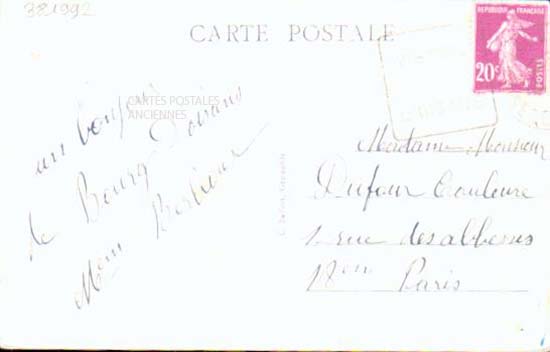 381992
CARTE POSTALE
REPUBLIQUE FRANÇAISE
20c
POSTES
CARTES POSTALES
ANCIENNES
un bonjour
de Bourg d'oisans
Mem
Madame Monsieur
Dufour Couleure
1 rue des abbesses
18em Paris